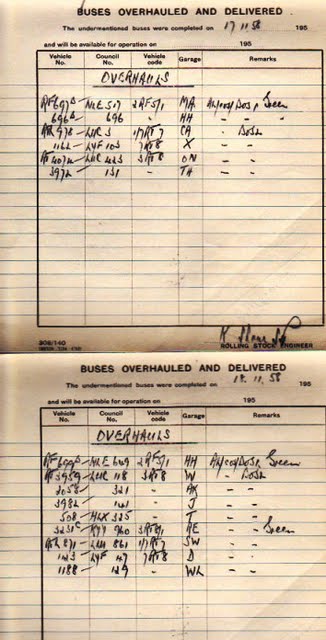 BUSES OVERHAULED AND DELIVERED
The undermentioned buses were completed on 17 11 58 195
and will be available for operation on 195
Vehicle No. Council No. Vehicle code Garage Remarks
OVERHAULS
RF 697 MLE 517 2RF5/1 MA Green
696 696 - HH - -
978 LUC 3 CA - DOSL
1162 LYF 103 7RT8 X - -
RT 4074 LUC 423 3RT8 ON - -
3972 131 - TH - -
309/140
ROLLING STOCK ENGINEER
BUSES OVERHAULED AND DELIVERED
The undermentioned buses were completed on 18. 11. 58 195
and will be available for operation on 195
Vehicle No. Council No. Vehicle code Garage Remarks
OVERHAULS
RF MLE 649 2RF5/1 HH Green
RT 3959 LUC 118 3RT8 W - DOSL
321 - AK - -
3982 141 - J - -
508 HLX 325 - T - -
3231 KYY 960 RE - Green
871 LUC 861 SW - -
123 LYF 47 7RT8 D - -
1188 129 - WL - -